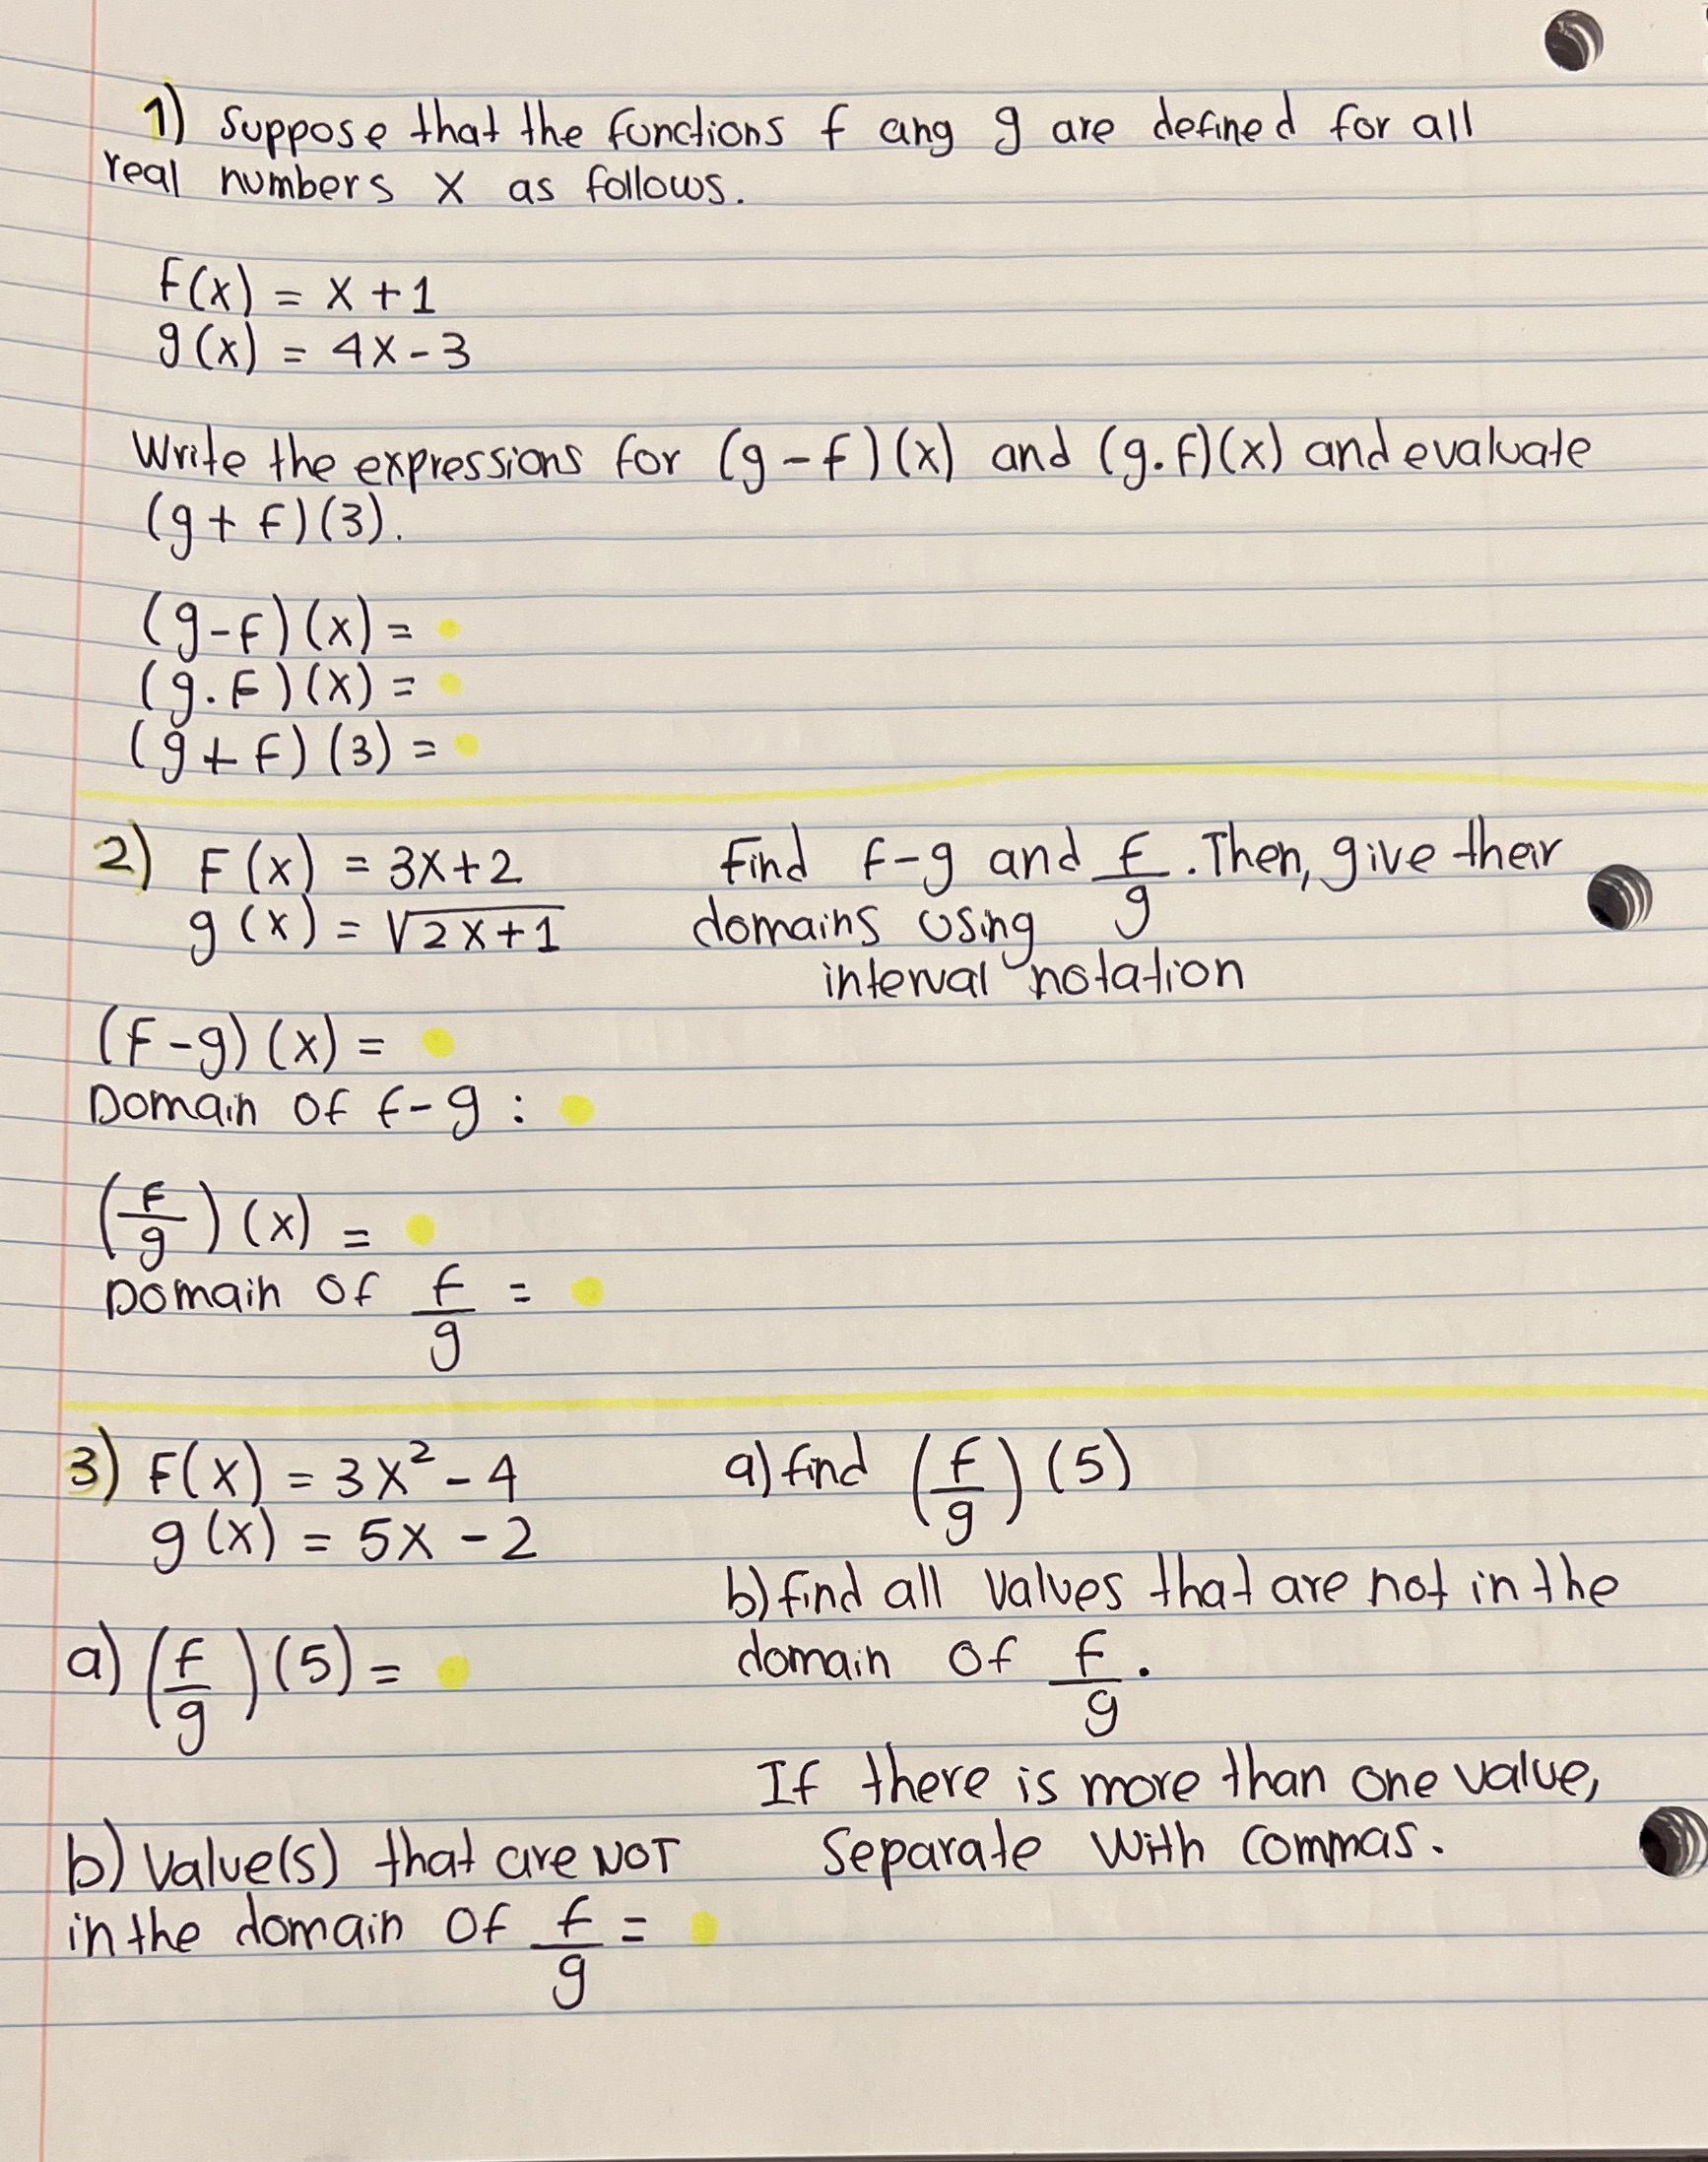 1) Suppose that the functions f ang g are defined for all
real numbers x as follows.
f(x) = x + 1
g(x) = 4x - 3
Write the expressions for (g - f)(x) and (g . f)(x) and evaluate
(g + f)(3).
(g - f)(x) =
(g . f)(x) =
(g + f)(3) =
2) f(x) = 3x + 2
g(x) = √(2x + 1)
Find f - g and f/g . Then, give their
domains using
interval notation
(f - g)(x) =
Domain of f - g :
(f/g)(x) =
Domain of f/g =
3) f(x) = 3x² - 4
g(x) = 5x - 2
a) find (f/g)(5)
b) find all values that are not in the
domain of f/g .
If there is more than one value,
separate with commas.
a) (f/g)(5) =
b) Value(s) that are NOT
in the domain of f/g =